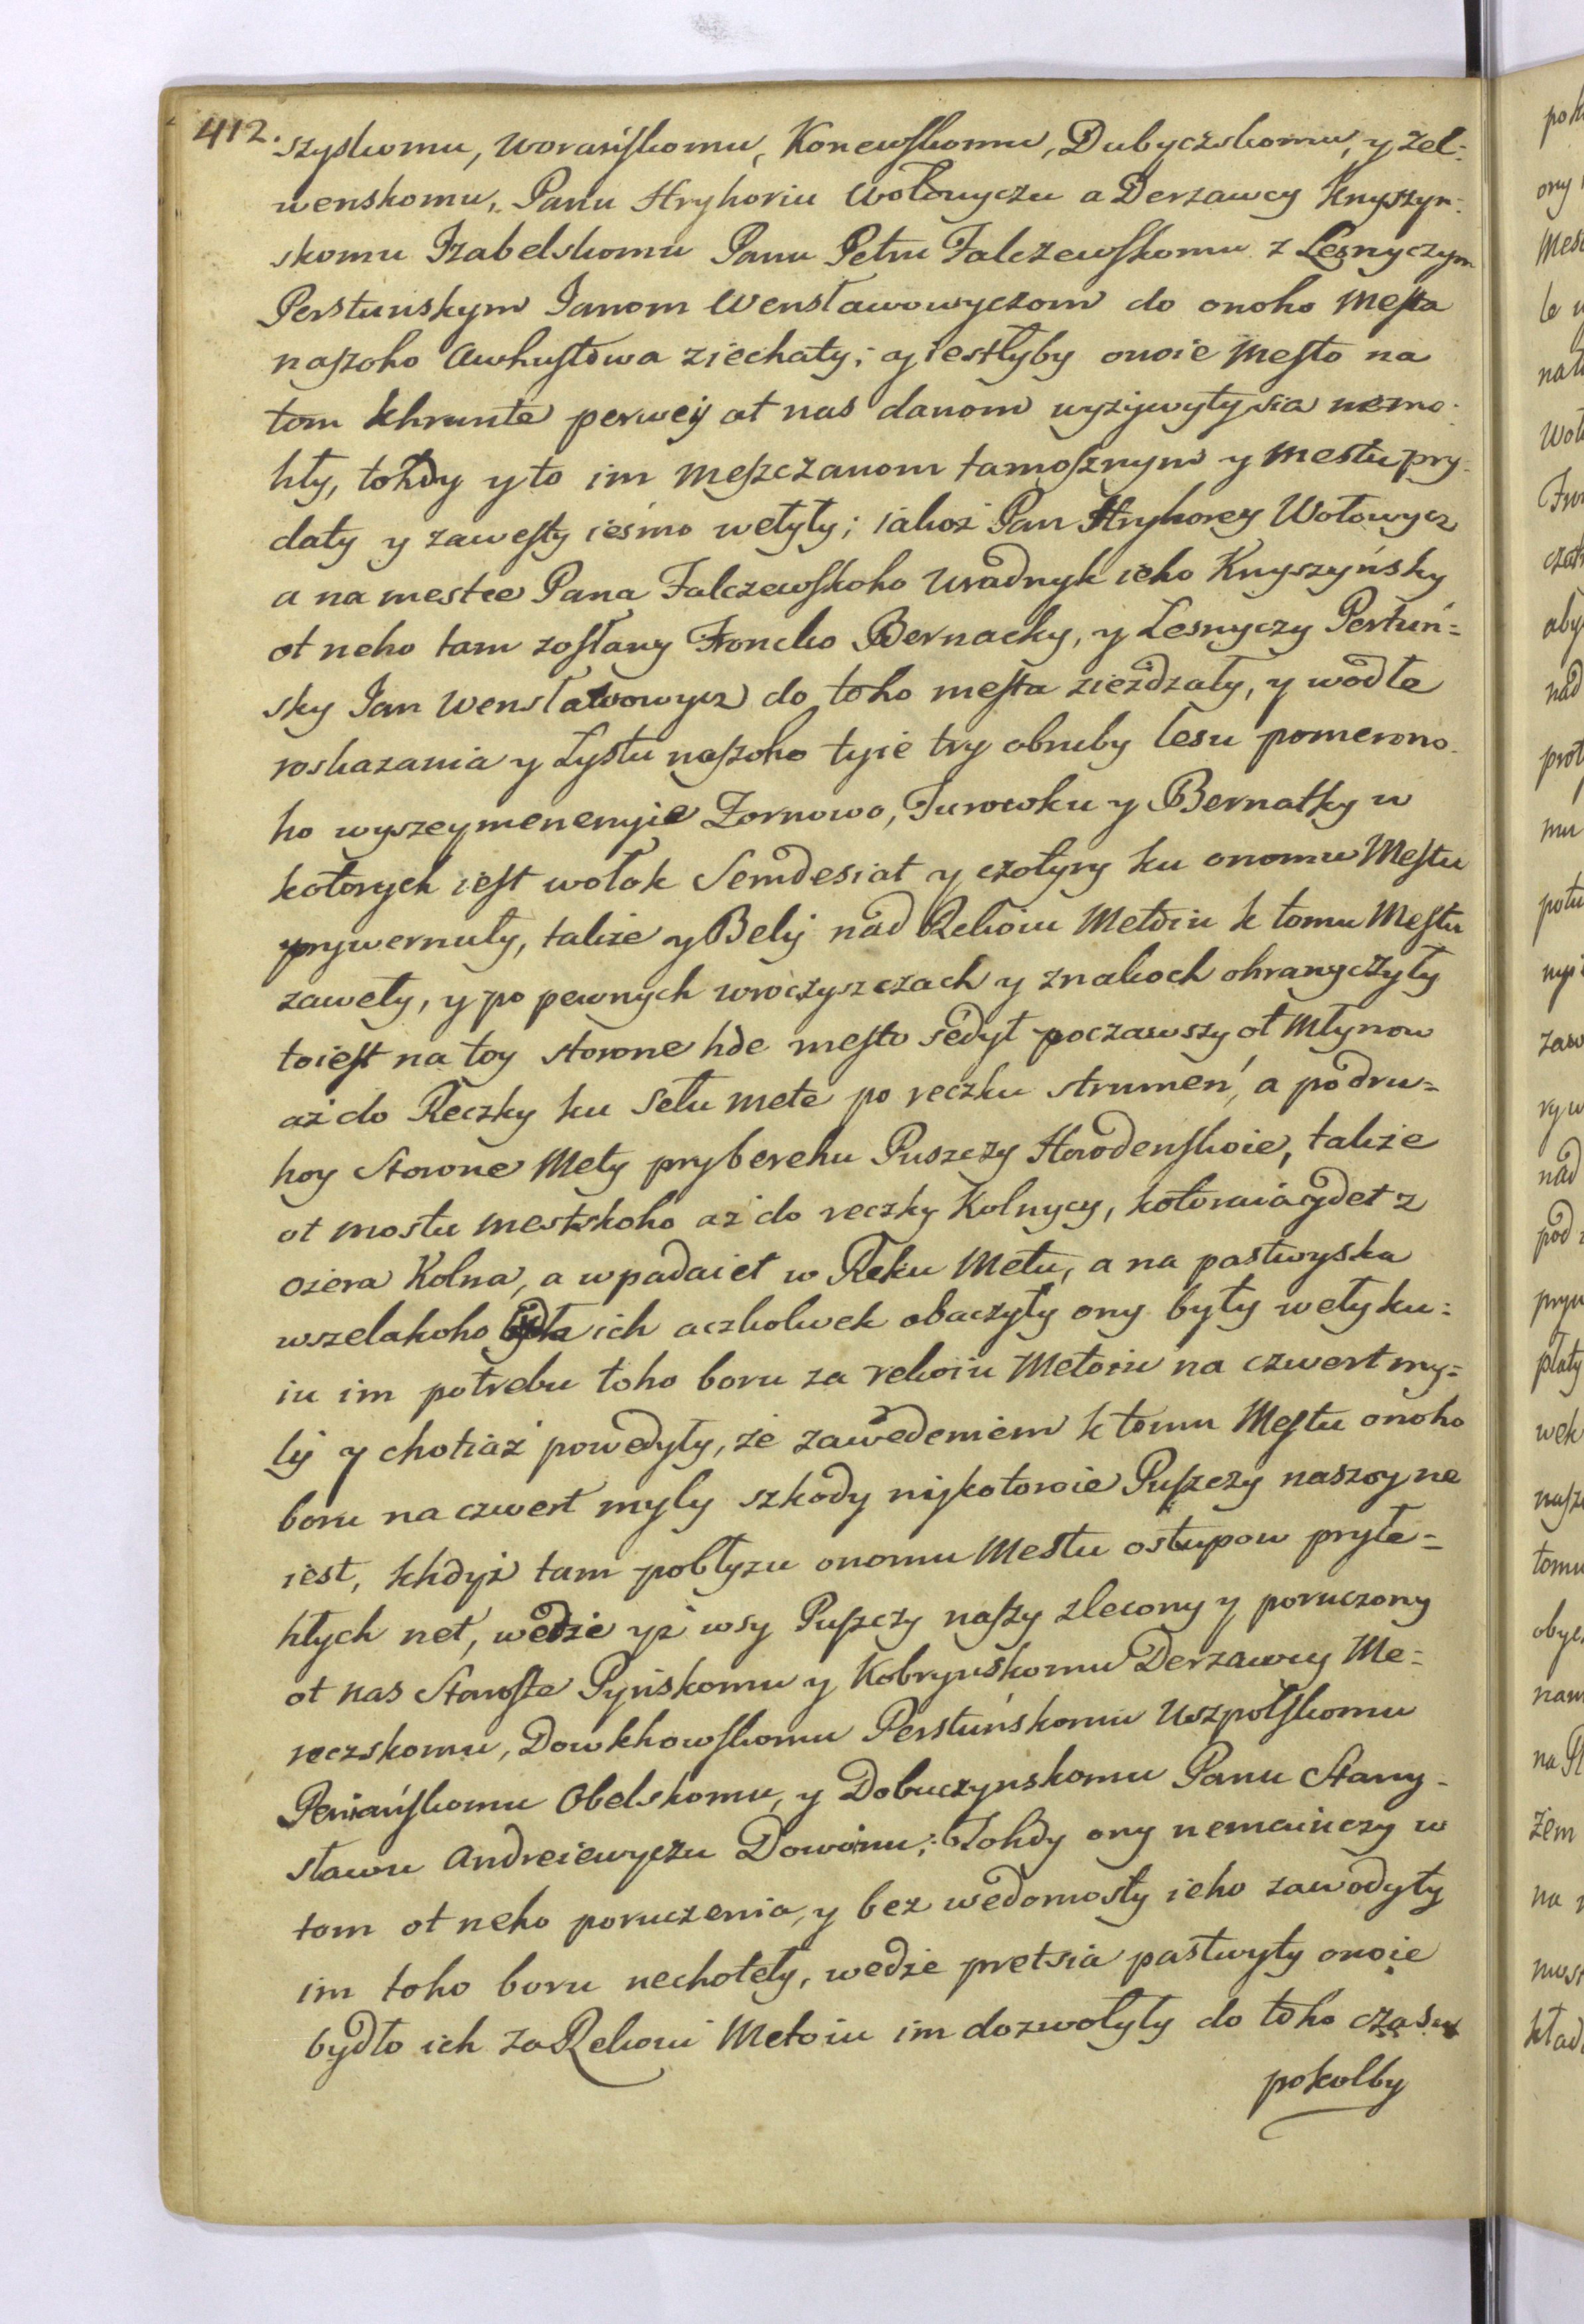 412. szyskomu, Worańskomu, Konewskomu, Dubyczskomu, y Zel-
wenskomu, Panu Hryhoriu Wołowyczu a Derzawcy Knyszyn-
skomu Izabelskomu Panu Petru Falczewskomu z Lesnyczym
Perstunskym Janom Wensławowyczom do onoho Mesta
naszoho Awhustowa ziechaty; y iestłyby onoie Mesto na
tom khrunte perweÿ ot nas danom wyzywyty sia nemo-
hły, tohdy y to im Meszczanom tamosznym y Mestu pry-
daty y zawesty ieśmo wełyły; iakoż Pan Hryhorey Wołowycz
a na mestce Pana Falczewskoho Uradnyk ieho Knyszyńsky
ot neho tam zosłany Froncko Bernacky, y Lesnyczy Perstuń-
sky Jan Wensławowycz do toho mesta zieżdzały, y wodłe
roskazania y Lystu naszoho tyie try obruby lesu pomerono-
ho wyszeymenenyie Zornowo, Turowku y Bernatky w
kotorych iest wołok Semdesiat y czotyry ku onomu Mestu
prywernuły, takze y Beły nad Rekoiu Metoiu k tomu Mestu
zaweły, y po pewnych wroczyszczach y znakoch ohranyczyły
toiest na toy storone hde mesto sedyt poczawszy ot Młynow
aż do Reczky ku Sełu Mete po reczku strumeń, a po dru-
hoy storone Mety pry berehu Puszczy Horodenskoie, takze
ot mostu mestskoho aż do reczky Kolnycy, kotoraia ydet z
oziera Kolna, a wpadaiet w Reku Metu, a na pastwyska
wszelakoho bydła ich aczkolwek obaczyły ony były wełyku-
iu im potrebu toho boru za rekoiu Metoiu na czwert my-
ly y chotiaż powedyły, że zawedeniem k tomu Mestu onoho
boru na czwert myly szkody nijkotoroie Puszczy naszoy ne
iest, khdyż tam pobłyzu onomu Mestu ostupow pryłe-
hłych net, wedże yż wsy Puszczy naszy zlecony y poruczony
ot nas Staroste Pynskomu y Kobrynskomu Derzawcy Me-
reczskomu, Dowkhowskomu Perstuńskomu Uszpolskomu
Peniańskomu Obelskomu, y Dobuczynskomu Panu Stany-
sławu Andreiewyczu Dowoinu; Tohdy ony nemaiuczy w
tom ot neho poruczenia, y bez wedomosty ieho zawodyty
im toho boru nechotely, wedże pretsia pastwyty onoie
bydło ich za Rekoiu Metoiu im dozwołyły do toho czasu
pokolby